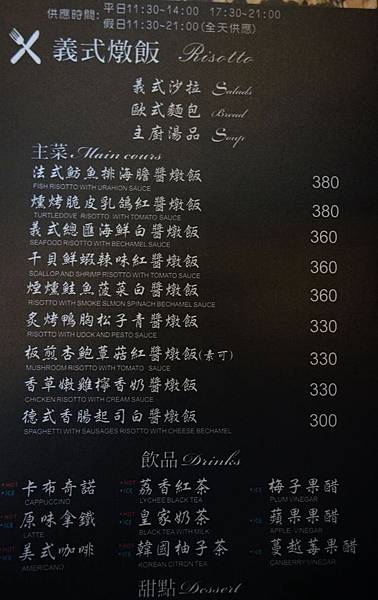 供應時間: 平日11:30~14:00 17:30~21:00
假日11:30~21:00(全天供應)
義式燉飯 Risotto
義式沙拉 Salads
歐式麵包 Bread
主廚湯品 Soup
主菜 Main cours
法式魴魚排海膽醬燉飯 380
FISH RISOTTO WITH URAHION SAUCE
爐烤脆皮乳鴿紅醬燉飯 380
TURTLEDOVE RISOTTO WITH TOMATO SAUCE
義式總匯海鮮白醬燉飯 360
SEAFOOD RISOTTO WITH BECHAMEL SAUCE
干貝鮮蝦辣味紅醬燉飯 360
SCALLOP AND SHRIMP RISOTTO WITH TOMATO SAUCE
煙燻鮭魚菠菜白醬燉飯 360
RISOTTO WITH SMOKE SLMON SPINACH BECHAMEL SAUCE
炙烤鴨胸松子青醬燉飯 330
RISOTTO WITH UDCK AND PESTO SAUCE
板煎杏鮑蕈菇紅醬燉飯(素可) 330
MUSHROOM RISOTTO WITH TOMATO SAUCE
香草嫩雞檸香奶醬燉飯 330
CHICKEN RISOTTO WITH CREAM SAUCE
德式香腸起司白醬燉飯 300
SPAGHETTI WITH SAUSAGES RISOTTO WITH CHEESE BECHAMEL
飲品 Drinks
HOT ICE 卡布奇諾 HOT ICE 荔香紅茶 ICE 梅子果醋
CAPPUCCINO LYCHEE BLACK TEA PLUM VINEGAR
HOT ICE 原味拿鐵 HOT ICE 皇家奶茶 ICE 蘋果果醋
LATTE BLACK TEA WITH MILK APPLE VINEGAR
HOT ICE 美式咖啡 HOT ICE 韓國柚子茶 ICE 蔓越莓果醋
AMERICANO KOREAN CITRON TEA CANBERRY VINEGAR
甜點 Dessert